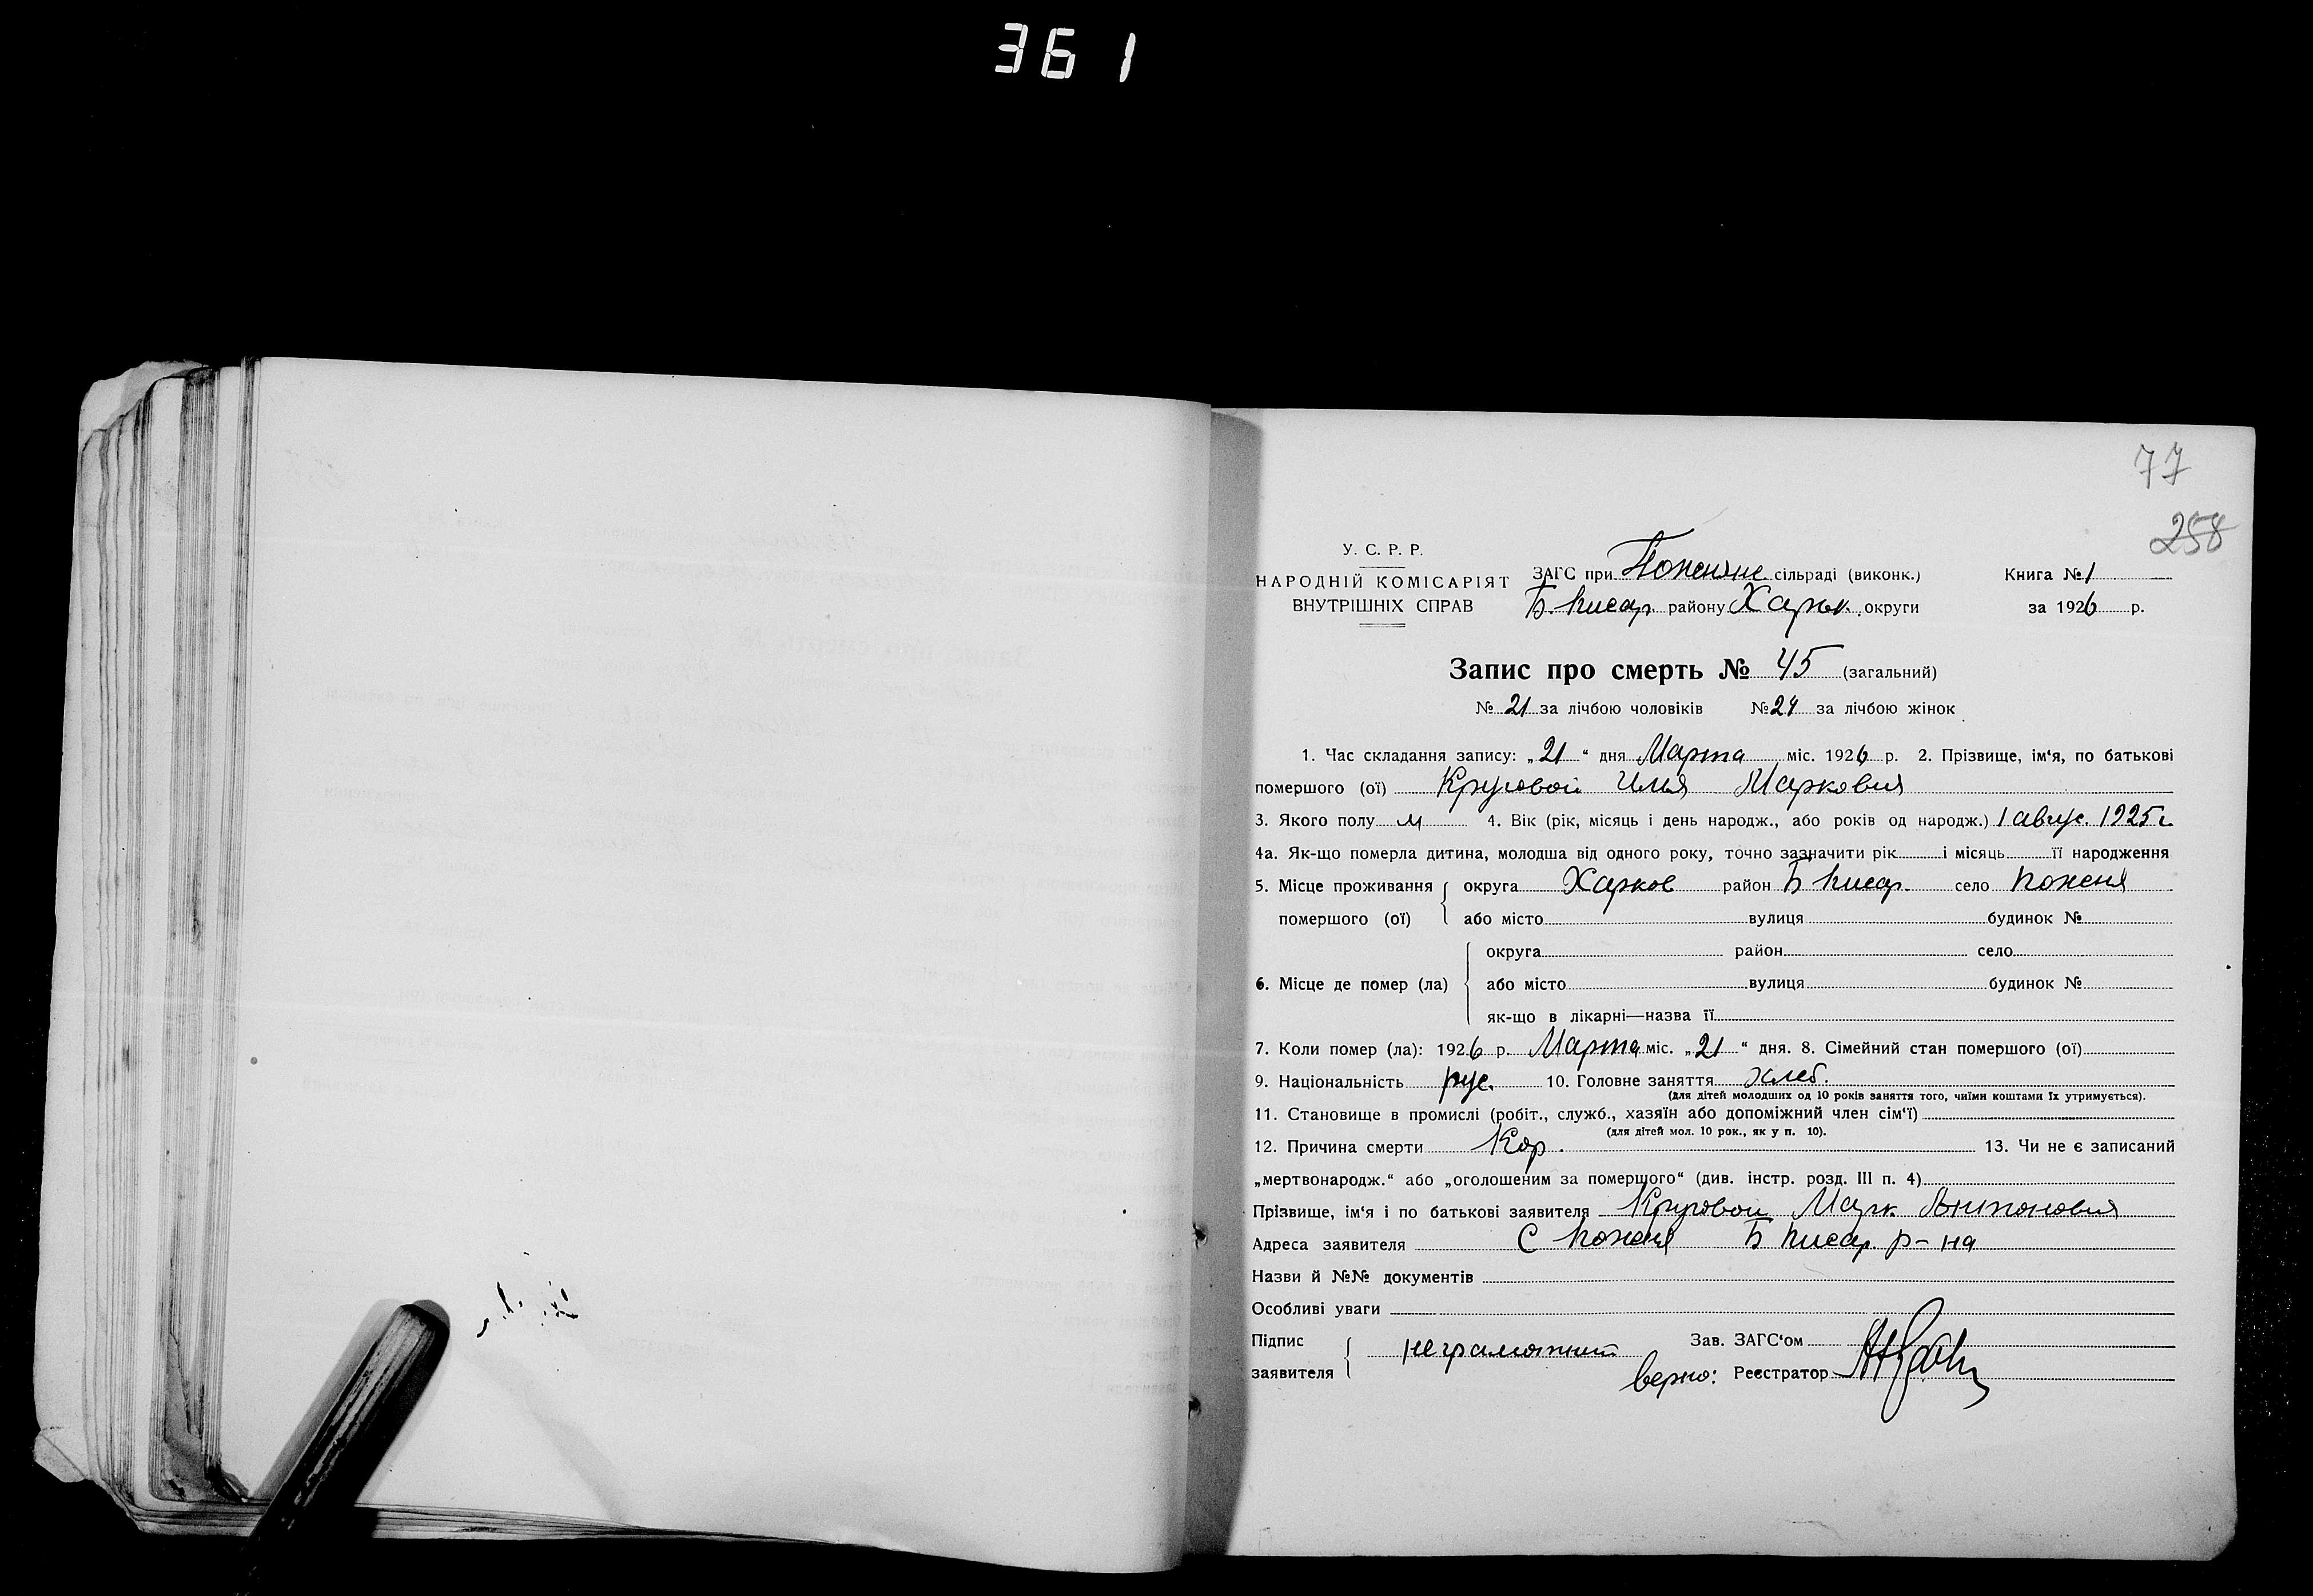 361
77
258
У. С. Р. Р.
НАРОДНІЙ КОМІСАРІЯТ
ВНУТРІШНІХ СПРАВ
ЗАГС при Поженяне сільраді (виконк.)
Б. Писар. району Харьк. округи
Книга № 1
за 1926 р.
Запис про смерть № 45 (загальний)
№ 21 за лічбою чоловіків № 24 за лічбою жінок
1. Час складання запису: „21“ дня Марта міс. 1926 р. 2. Прізвище, ім‘я, по батькові
помершого (ої) Круговой Илья Маркович
3. Якого полу м 4. Вік (рік, місяць і день народж., або років од народж.) 1 авгус. 1925 г.
4а. Як-що померла дитина, молодша від одного року, точно зазначити рік і місяць її народження
5. Місце проживання помершого (ої) округа Харков район Б Писар. село Поженя
або місто вулиця будинок №
6. Місце де помер (ла) округа район село
або місто вулиця будинок №
як-що в лікарні—назва її
7. Коли помер (ла): 1926 р. Марта міс. „21“ дня. 8. Сімейний стан помершого (ої)
9. Національність рус. 10. Головне заняття хлеб.
(для дітей молодших од 10 років заняття того, чиїми коштами їх утримується).
11. Становище в промислі (робіт., служб., хазяїн або допоміжний член сім‘ї)
(для дітей мол. 10 рок., як у п. 10).
12. Причина смерти Кор. 13. Чи не є записаний
„мертвонародж.“ або „оголошеним за помершого“ (див. інстр. розд. III п. 4)
Прізвище, ім‘я і по батькові заявителя Круговой Марк Антонович
Адреса заявителя С Поженя Б Писар. р-на
Назви й №№ документів
Особливі уваги
Підпис заявителя неграмотний Зав. ЗАГС‘ом
верно: Реєстратор